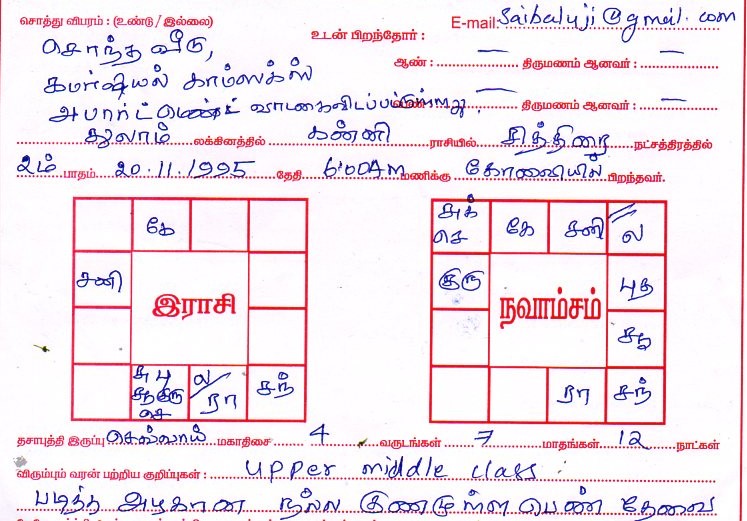 சொத்து விபரம் : (உண்டு / இல்லை)
E-mail: Saibaluji@gmail.com
சொந்த வீடு,
உடன் பிறந்தோர் :
கமர்ஷியல் காம்ளக்ஸ்
ஆண் : — திருமணம் ஆனவர் : —
அபார்ட்மெண்ட் வாடகைவிடப்பட்டுள்ளது. — திருமணம் ஆனவர் : —
துலாம் லக்கினத்தில் கன்னி ராசியில் சித்திரை நட்சத்திரத்தில்
2ம் பாதம் 20.11.1995 தேதி 6:00AM மணிக்கு கோவையில் பிறந்தவர்.
கே
சனி
இராசி
சு பு
சுக் குரு
செ
ல/
ரா
சந்
சுக்
செ
கே
சனி
ல
குரு
புத
நவாம்சம்
சூ
ரா
சந்
தசாபுத்தி இருப்பு செவ்வாய் மகாதிசை 4 வருடங்கள் 7 மாதங்கள் 12 நாட்கள்
விரும்பும் வரன் பற்றிய குறிப்புகள் : upper middle class
படித்த அழகான நல்ல குணமுள்ள பெண் தேவை